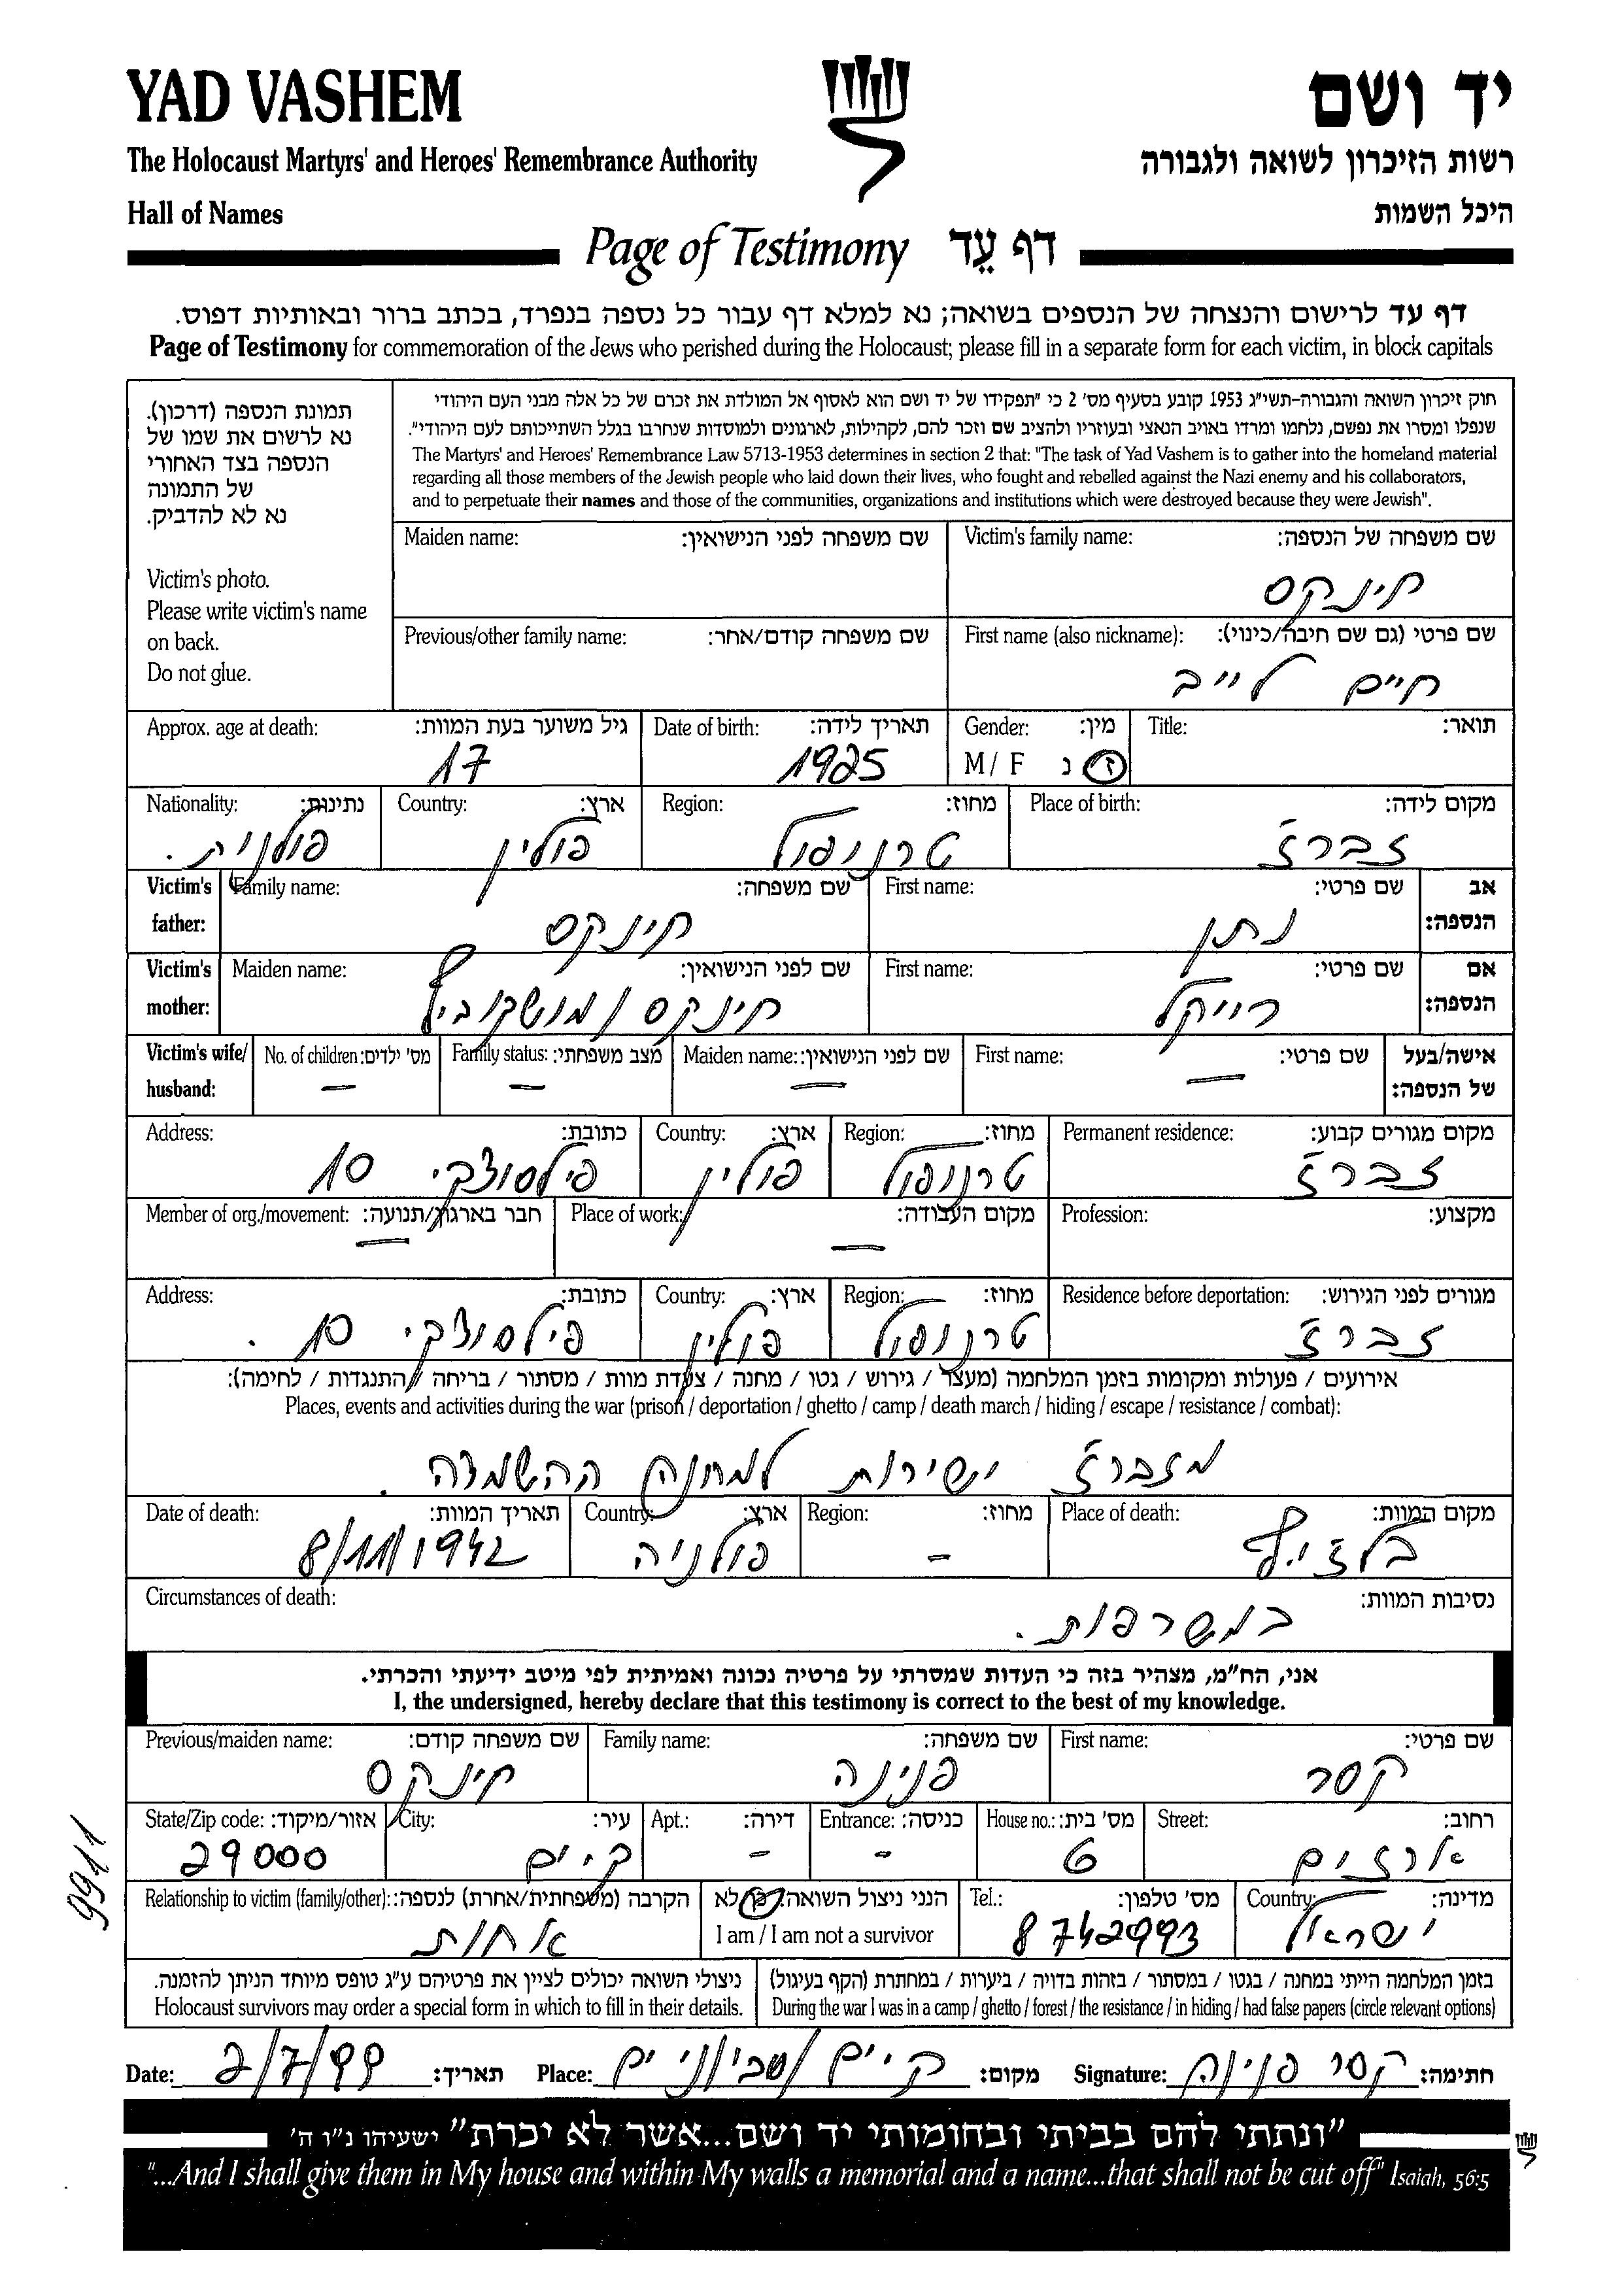 YAD VASHEM
יד ושם
The Holocaust Martyrs' and Heroes' Remembrance Authority
רשות הזיכרון לשואה ולגבורה
Hall of Names
היכל השמות
Page of Testimony דף עֵד
דף עד לרישום והנצחה של הנספים בשואה; נא למלא דף עבור כל נספה בנפרד, בכתב ברור ובאותיות דפוס.
Page of Testimony for commemoration of the Jews who perished during the Holocaust; please fill in a separate form for each victim, in block capitals
חוק זיכרון השואה והגבורה-תשי״ג 1953 קובע בסעיף מס׳ 2 כי ״תפקידו של יד ושם הוא לאסוף אל המולדת את זכרם של כל אלה מבני העם היהודי
שנפלו ומסרו את נפשם, נלחמו ומרדו באויב הנאצי ובעוזריו ולהציב שם וזכר להם, לקהילות, לארגונים ולמוסדות שנחרבו בגלל השתייכותם לעם היהודי״.
The Martyrs' and Heroes' Remembrance Law 5713-1953 determines in section 2 that: "The task of Yad Vashem is to gather into the homeland material
regarding all those members of the Jewish people who laid down their lives, who fought and rebelled against the Nazi enemy and his collaborators,
and to perpetuate their names and those of the communities, organizations and institutions which were destroyed because they were Jewish".
תמונת הנספה (דרכון).
נא לרשום את שמו של
הנספה בצד האחורי
של התמונה
נא לא להדביק.
Victim's photo.
Please write victim's name
on back.
Do not glue.
Victim's family name: שם משפחה של הנספה:
חינקס
Maiden name: שם משפחה לפני הנישואין:
First name (also nickname): שם פרטי (גם שם חיבה/כינוי):
חיים לייב
Previous/other family name: שם משפחה קודם/אחר:
Title: תואר:
Gender: מין:
M / F ז נ
Date of birth: תאריך לידה:
1925
Approx. age at death: גיל משוער בעת המוות:
17
Place of birth: מקום לידה:
זברז׳
Region: מחוז:
טרנופול
Country: ארץ:
פולין
Nationality: נתינות:
פולנית.
Victim's father: אב הנספה:
First name: שם פרטי:
נתן
Family name: שם משפחה:
חינקס
Victim's mother: אם הנספה:
First name: שם פרטי:
רייקל
Maiden name: שם לפני הנישואין:
חינקס / מושקוביץ
Victim's wife/ husband: אישה/בעל של הנספה:
First name: שם פרטי:
—
Maiden name: שם לפני הנישואין:
—
Family status: מצב משפחתי:
—
No. of children: מס׳ ילדים:
—
Permanent residence: מקום מגורים קבוע:
זברז׳
Region: מחוז:
טרנופול
Country: ארץ:
פולין
Address: כתובת:
פילסוצקי 10
Profession: מקצוע:
Place of work: מקום העבודה:
—
Member of org./movement: חבר בארגון/תנועה:
—
Residence before deportation: מגורים לפני הגירוש:
זברז׳
Region: מחוז:
טרנופול
Country: ארץ:
פולין
Address: כתובת:
פילסוצקי 10.
אירועים / פעולות ומקומות בזמן המלחמה (מעצר / גירוש / גטו / מחנה / צעדת מוות / מסתור / בריחה / התנגדות / לחימה):
Places, events and activities during the war (prison / deportation / ghetto / camp / death march / hiding / escape / resistance / combat):
מזברז׳ ישירות למחנה ההשמדה.
Place of death: מקום המוות:
בלז׳יץ
Region: מחוז:
-
Country: ארץ:
פולניה
Date of death: תאריך המוות:
8/11/1942
Circumstances of death: נסיבות המוות:
במשרפות.
אני, הח״מ, מצהיר בזה כי העדות שמסרתי על פרטיה נכונה ואמיתית לפי מיטב ידיעתי והכרתי.
I, the undersigned, hereby declare that this testimony is correct to the best of my knowledge.
First name: שם פרטי:
קסר
Family name: שם משפחה:
פנינה
Previous/maiden name: שם משפחה קודם:
חינקס
Street: רחוב:
ארזים
House no.: מס׳ בית:
6
Entrance: כניסה:
-
Apt.: דירה:
-
City: עיר:
ק. ים
State/Zip code: אזור/מיקוד:
29000
Country: מדינה:
ישראל
Tel.: מס׳ טלפון:
8742993
הנני ניצול השואה: כן לא
I am / I am not a survivor
Relationship to victim (family/other): הקרבה (משפחתית/אחרת) לנספה:
אחות
בזמן המלחמה הייתי במחנה / בגטו / במסתור / בזהות בדויה / ביערות / במחתרת (הקף בעיגול)
During the war I was in a camp / ghetto / forest / the resistance / in hiding / had false papers (circle relevant options)
ניצולי השואה יכולים לציין את פרטיהם ע״ג טופס מיוחד הניתן להזמנה.
Holocaust survivors may order a special form in which to fill in their details.
Signature: קסר פנינה חתימה:
Place: ק. ים מקום:
Date: 2/7/99 תאריך:
״ונתתי להם בביתי ובחומותי יד ושם...אשר לא יכרת״ ישעיהו נ״ו ה׳
"...And I shall give them in My house and within My walls a memorial and a name...that shall not be cut off" Isaiah, 56:5
9911